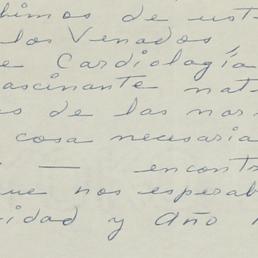 bimos de ust
los Venados
e Cardiología
ascinante nat
s de las nar
cosa necesaria
— encontr
ue nos esperab
idad y Año N